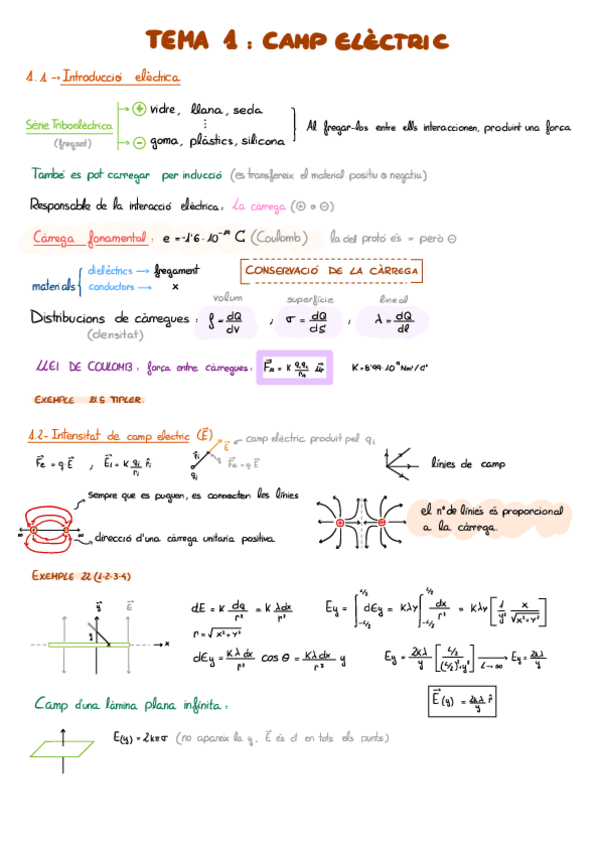 TEMA 1 : CAMP ELÈCTRIC
1.1 → Introducció elèctrica
Sèrie Triboelèctrica
(fregant)
⊕ vidre, llana, seda
⋮
⊖ goma, plàstics, silicona
Al fregar-los entre ells interaccionen, produint una força
També es pot carregar per inducció (es transfereix el material positiu o negatiu)
Responsable de la interacció elèctrica: La càrrega (⊕ o ⊖)
Càrrega fonamental: e = -1'6·10⁻¹⁹ C (Coulomb) la del protó és = però ⊖
materials
dielèctrics → fregament
conductors → x
CONSERVACIÓ DE LA CÀRREGA
volum superfície lineal
Distribucions de càrregues : ρ = dQ/dV ; σ = dQ/dS ; λ = dQ/dl
(densitat)
LLEI DE COULOMB: força entre càrregues:
K=8'99·10⁹ Nm²/C²
EXEMPLE 21.5 TIPLER.
1.2- Intensitat de camp elèctric (E⃗)
camp elèctric produit pel qᵢ
F⃗e = q·E⃗ , E⃗ᵢ = K qᵢ/rᵢ r̂ᵢ
r̂ᵢ
E⃗
F⃗e = q·E⃗
qᵢ
línies de camp
sempre que es puguen, es connecten les línies
direcció d'una càrrega unitaria positiva.
∞ ∞
el nº de línies és proporcional
a la càrrega.
EXEMPLE 22 (1-2-3-4)
y⃗ E⃗
x
dE = K dq/r² = K λdx/r²
r = √x²+y²
dEy = Kλdx/r² cos θ = Kλdx/r³ y
Ey = ∫_{-L/2}^{L/2} dEy = Kλy ∫_{-L/2}^{L/2} dx/r³ = Kλy [1/y² x/√x²+y²]
Ey = 2kλ/y [L/2/(L/2)²+y²] L→∞ Ey = 2kλ/y
E⃗(y) = 2kλ/y r̂
Camp d'una làmina plana infinita:
E(y) = 2kπσ (no apareix la y, E⃗ és ct en tots els punts)